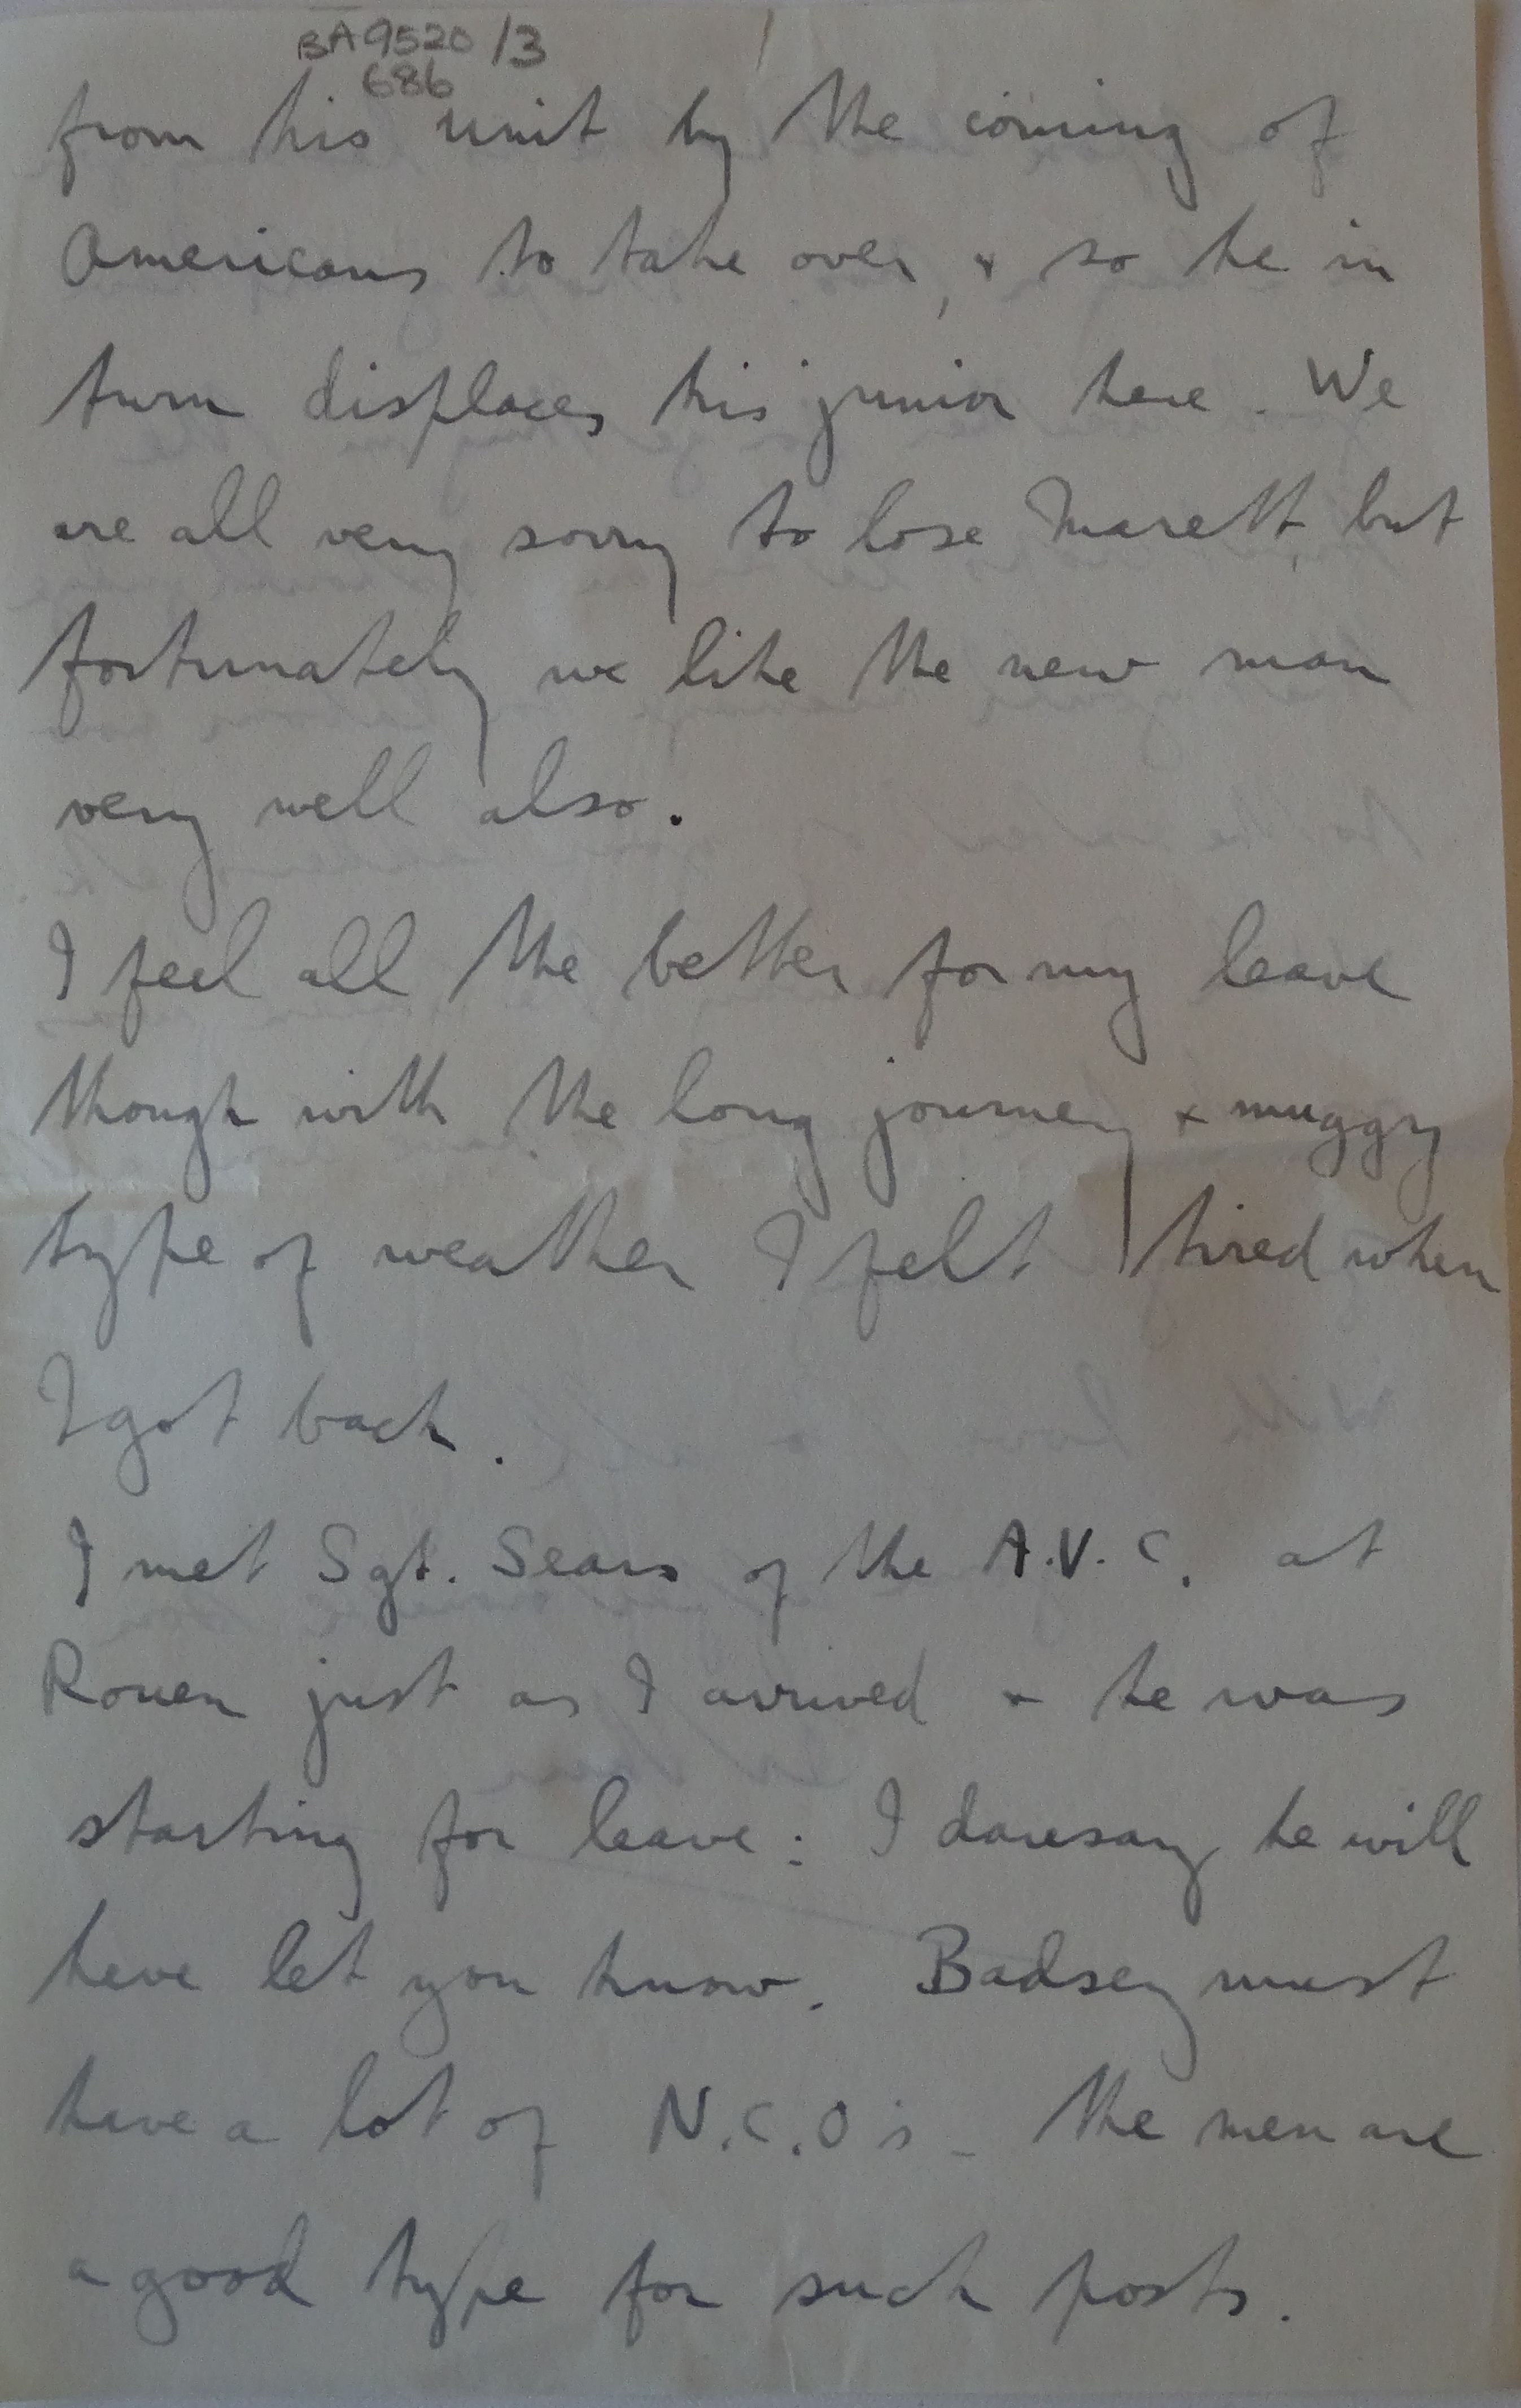 BA9520/3
686
from his unit by the coming of
Americans to take over, & so he in
turn displaces his junior here. We
are all very sorry to lose Marett, but
fortunately we like the new man
very well also.
I feel all the better for my leave
though with the long journey & muggy
type of weather I felt tired when
I got back.
I met Sgt. Sears of the A.V.C. at
Rouen just as I arrived & he was
starting for leave: I daresay he will
have let you know. Badsey must
have a lot of N.C.O's - the men are
a good type for such posts.